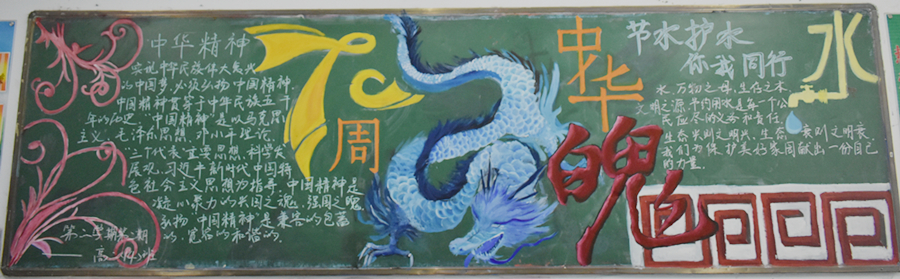 中华精神
实现中华民族伟大复兴
的中国梦,必须弘扬中国精神。
中国精神贯穿于中华民族五千
年的历史。中国精神是以马克思
主义、毛泽东思想、邓小平理论、
三个代表重要思想、科学发
展观、习近平新时代中国特
色社会主义思想为指导。中国精神是
凝心聚力的兴国之魂、强国之魄
弘扬中国精神是兼容的包蓄
的、宽容的和谐的。
第二学期第一期
70
周
中华
魄
节水护水
你我同行
水,万物之母,生存之本
明之源。节约用水是每一个公
民应尽的义务和责任。
生态兴则文明兴,生态衰则文明衰,
我们为保护美好家园献出一份自己
的力量。
水